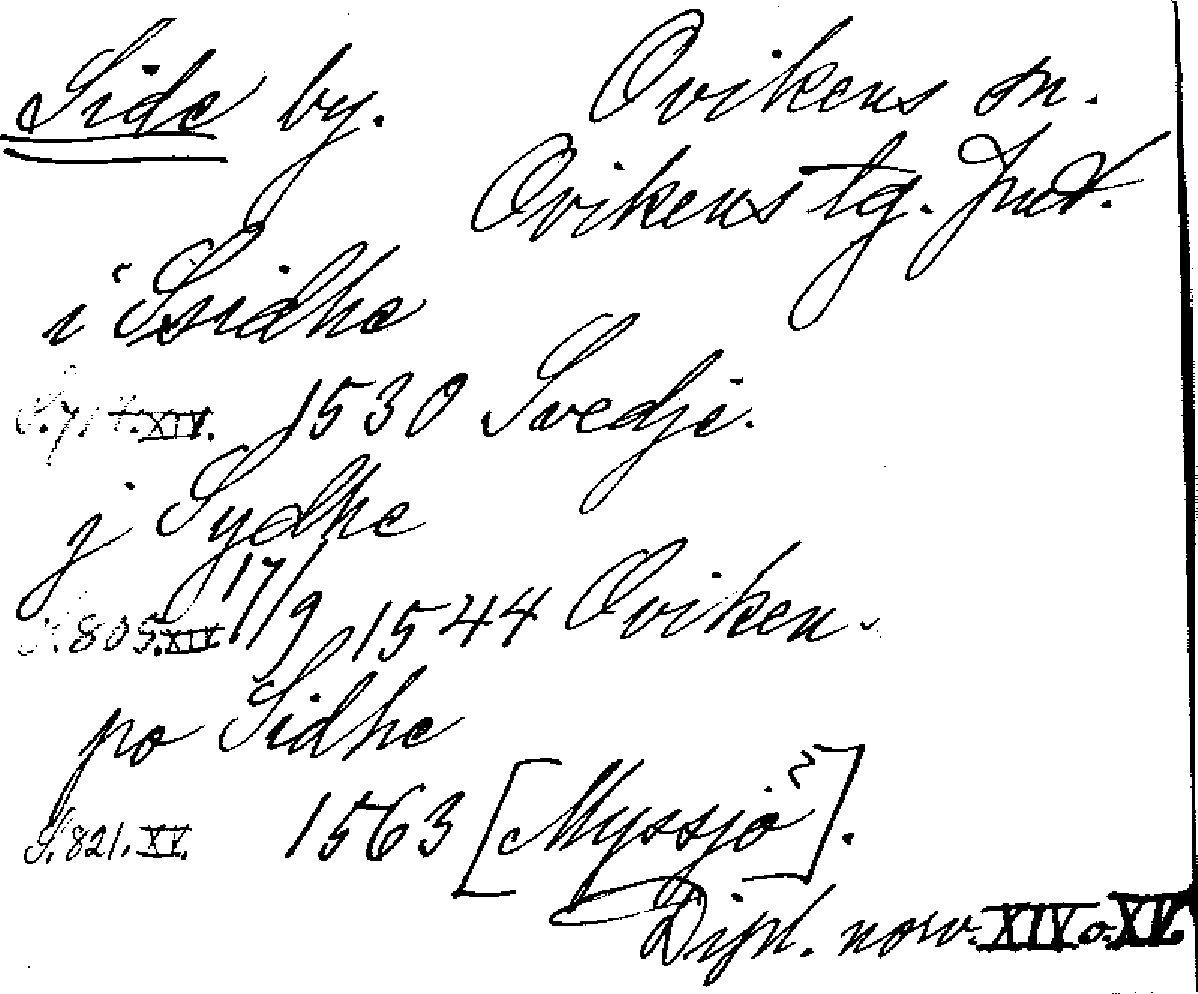 Side by. Ovikens sn.
Ovikens tg. Jmt.
i Ssidhe
S. 714. XIV. 1530 Svedje.
j Sydhe
S. 805. XIV. 17/9 1544 Oviken.
po Sidhe
S. 821. XV. 1563 [Myssjö].
Dipl. norv. XIV o. XV.